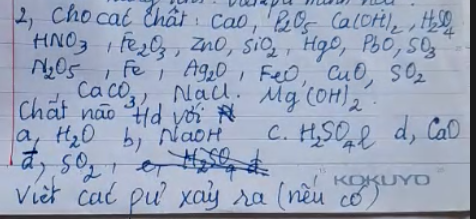 2, Cho các chất: CaO, P2O5, Ca(OH)2, H2SO4
HNO3, Fe2O3, ZnO, SiO2, HgO, PbO, SO3
N2O5, Fe, Ag2O, FeO, CuO, SO2
CaCO3, NaCl. Mg(OH)2.
Chất nào t/d với
a, H2O b, NaOH c. H2SO4 l d, CaO
đ, SO2, e, H2SO4 đ
KOKUYO
Viết các pư xảy ra (nếu có)